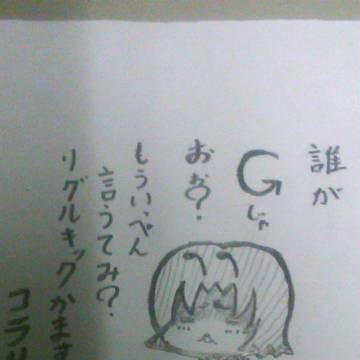 誰が
Gじゃ
おお?
もういっぺん
言うてみ?
リグルキックかます
コラ